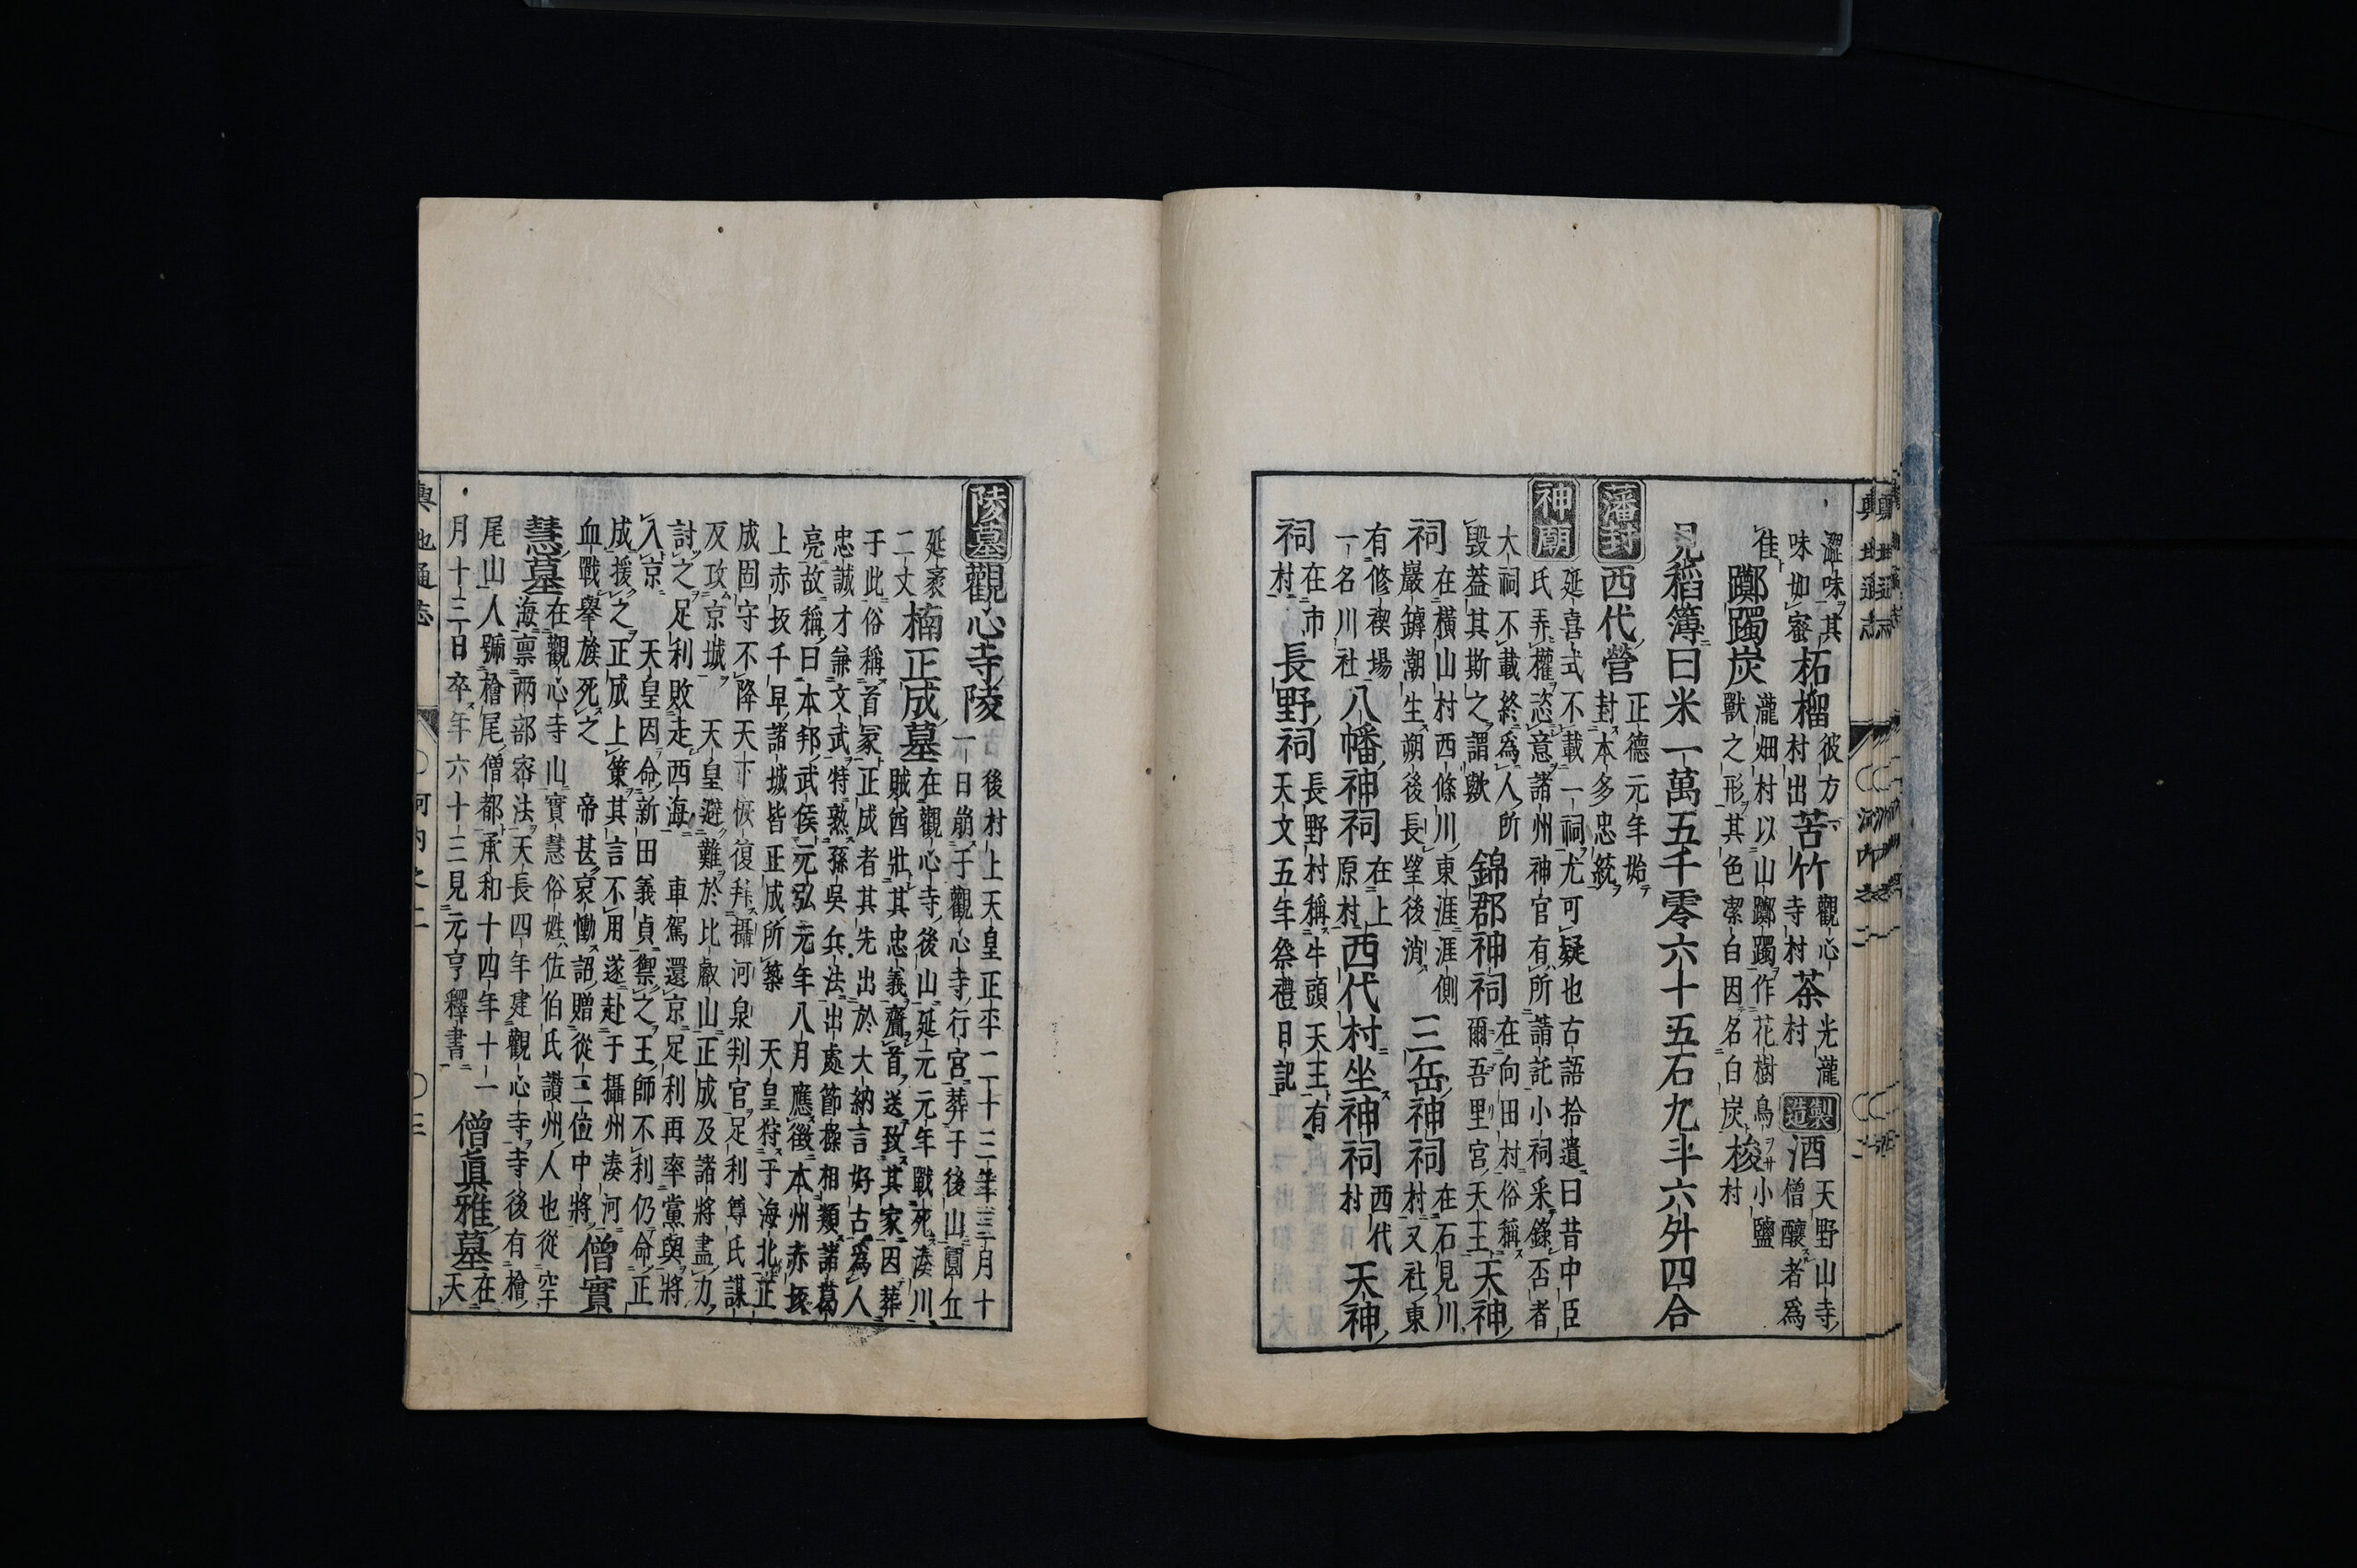 澀味其
味如密
柘榴
彼方
村出
苦竹
觀心
寺村
茶
光瀧
村
製造
酒
天野山寺
僧釀者爲
佳
躑躅炭
瀧畑村以山躑躅作花樹鳥
獸之形其色潔白因名白炭
梭
小鹽
村
見稻簿曰米一萬五千零六十五石九斗六升四合
藩封
西代營
正德元年始
封本多忠統
神廟
延喜式不載一祠尤可疑也古語拾遺曰昔中臣
氏弄權恣意諸州神官有所請託小祠采錄否者
大祠不載終爲人所
毀蓋其斯之謂歟
錦郡神祠
在向田村俗稱
爾吾里宮天王
天神
祠
在橫山村西條川東涯涯側
巖罅潮生朔後長望後消
三岳神祠
在石見川
村又社東
有修禊場
一名川社
八幡神祠
在上
原村
西代村坐神祠
西代
村
天神
祠
在市
村
長野祠
長野村稱牛頭天王有
天文五年祭禮日記
陵墓
觀心寺陵
後村上天皇正平二十三年三月十
一日崩于觀心寺行宮葬于後山圓丘
延袤
二丈
楠正成墓
在觀心寺後山延元元年戰死湊川
賊酋壯其忠義齎首送致其家因葬
于此俗稱首冢正成者其先出於大納言好古爲人
忠誠才兼文武特熟孫吳兵法出處節操相類諸葛
亮故稱曰本邦武侯元弘元年八月應徵本州赤坂
上赤坂千早諸城皆正成所築天皇狩于海北正
成固守不降天下恢復拜攝河泉判官足利尊氏謀
反攻京城天皇避難於比叡山正成及諸將盡力
討之足利敗走西海車駕還京足利再率黨與將
入京天皇因命新田義貞禦之王師不利仍命正
成援之正成上策其言不用遂赴于攝州湊河
血戰擧族死之帝甚哀慟詔贈從三位中將
僧實
慧墓
在觀心寺山實慧俗姓佐伯氏讚州人也從空
海稟兩部密法天長四年建觀心寺寺後有檜
尾山人號檜尾僧都承和十四年十一
月十三日卒年六十三見元亨釋書
僧眞雅墓
在
天